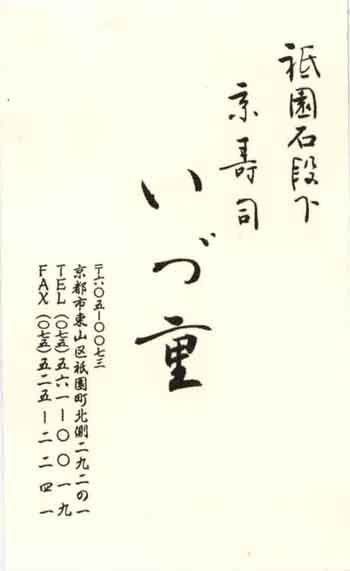 祇園石段下
京寿司
いづ重
〒六〇五ー〇〇七三
京都市東山区祇園町北側二九二の一
TEL(〇七五)五六一ー〇〇一九
FAX(〇七五)五二五ー二二四一